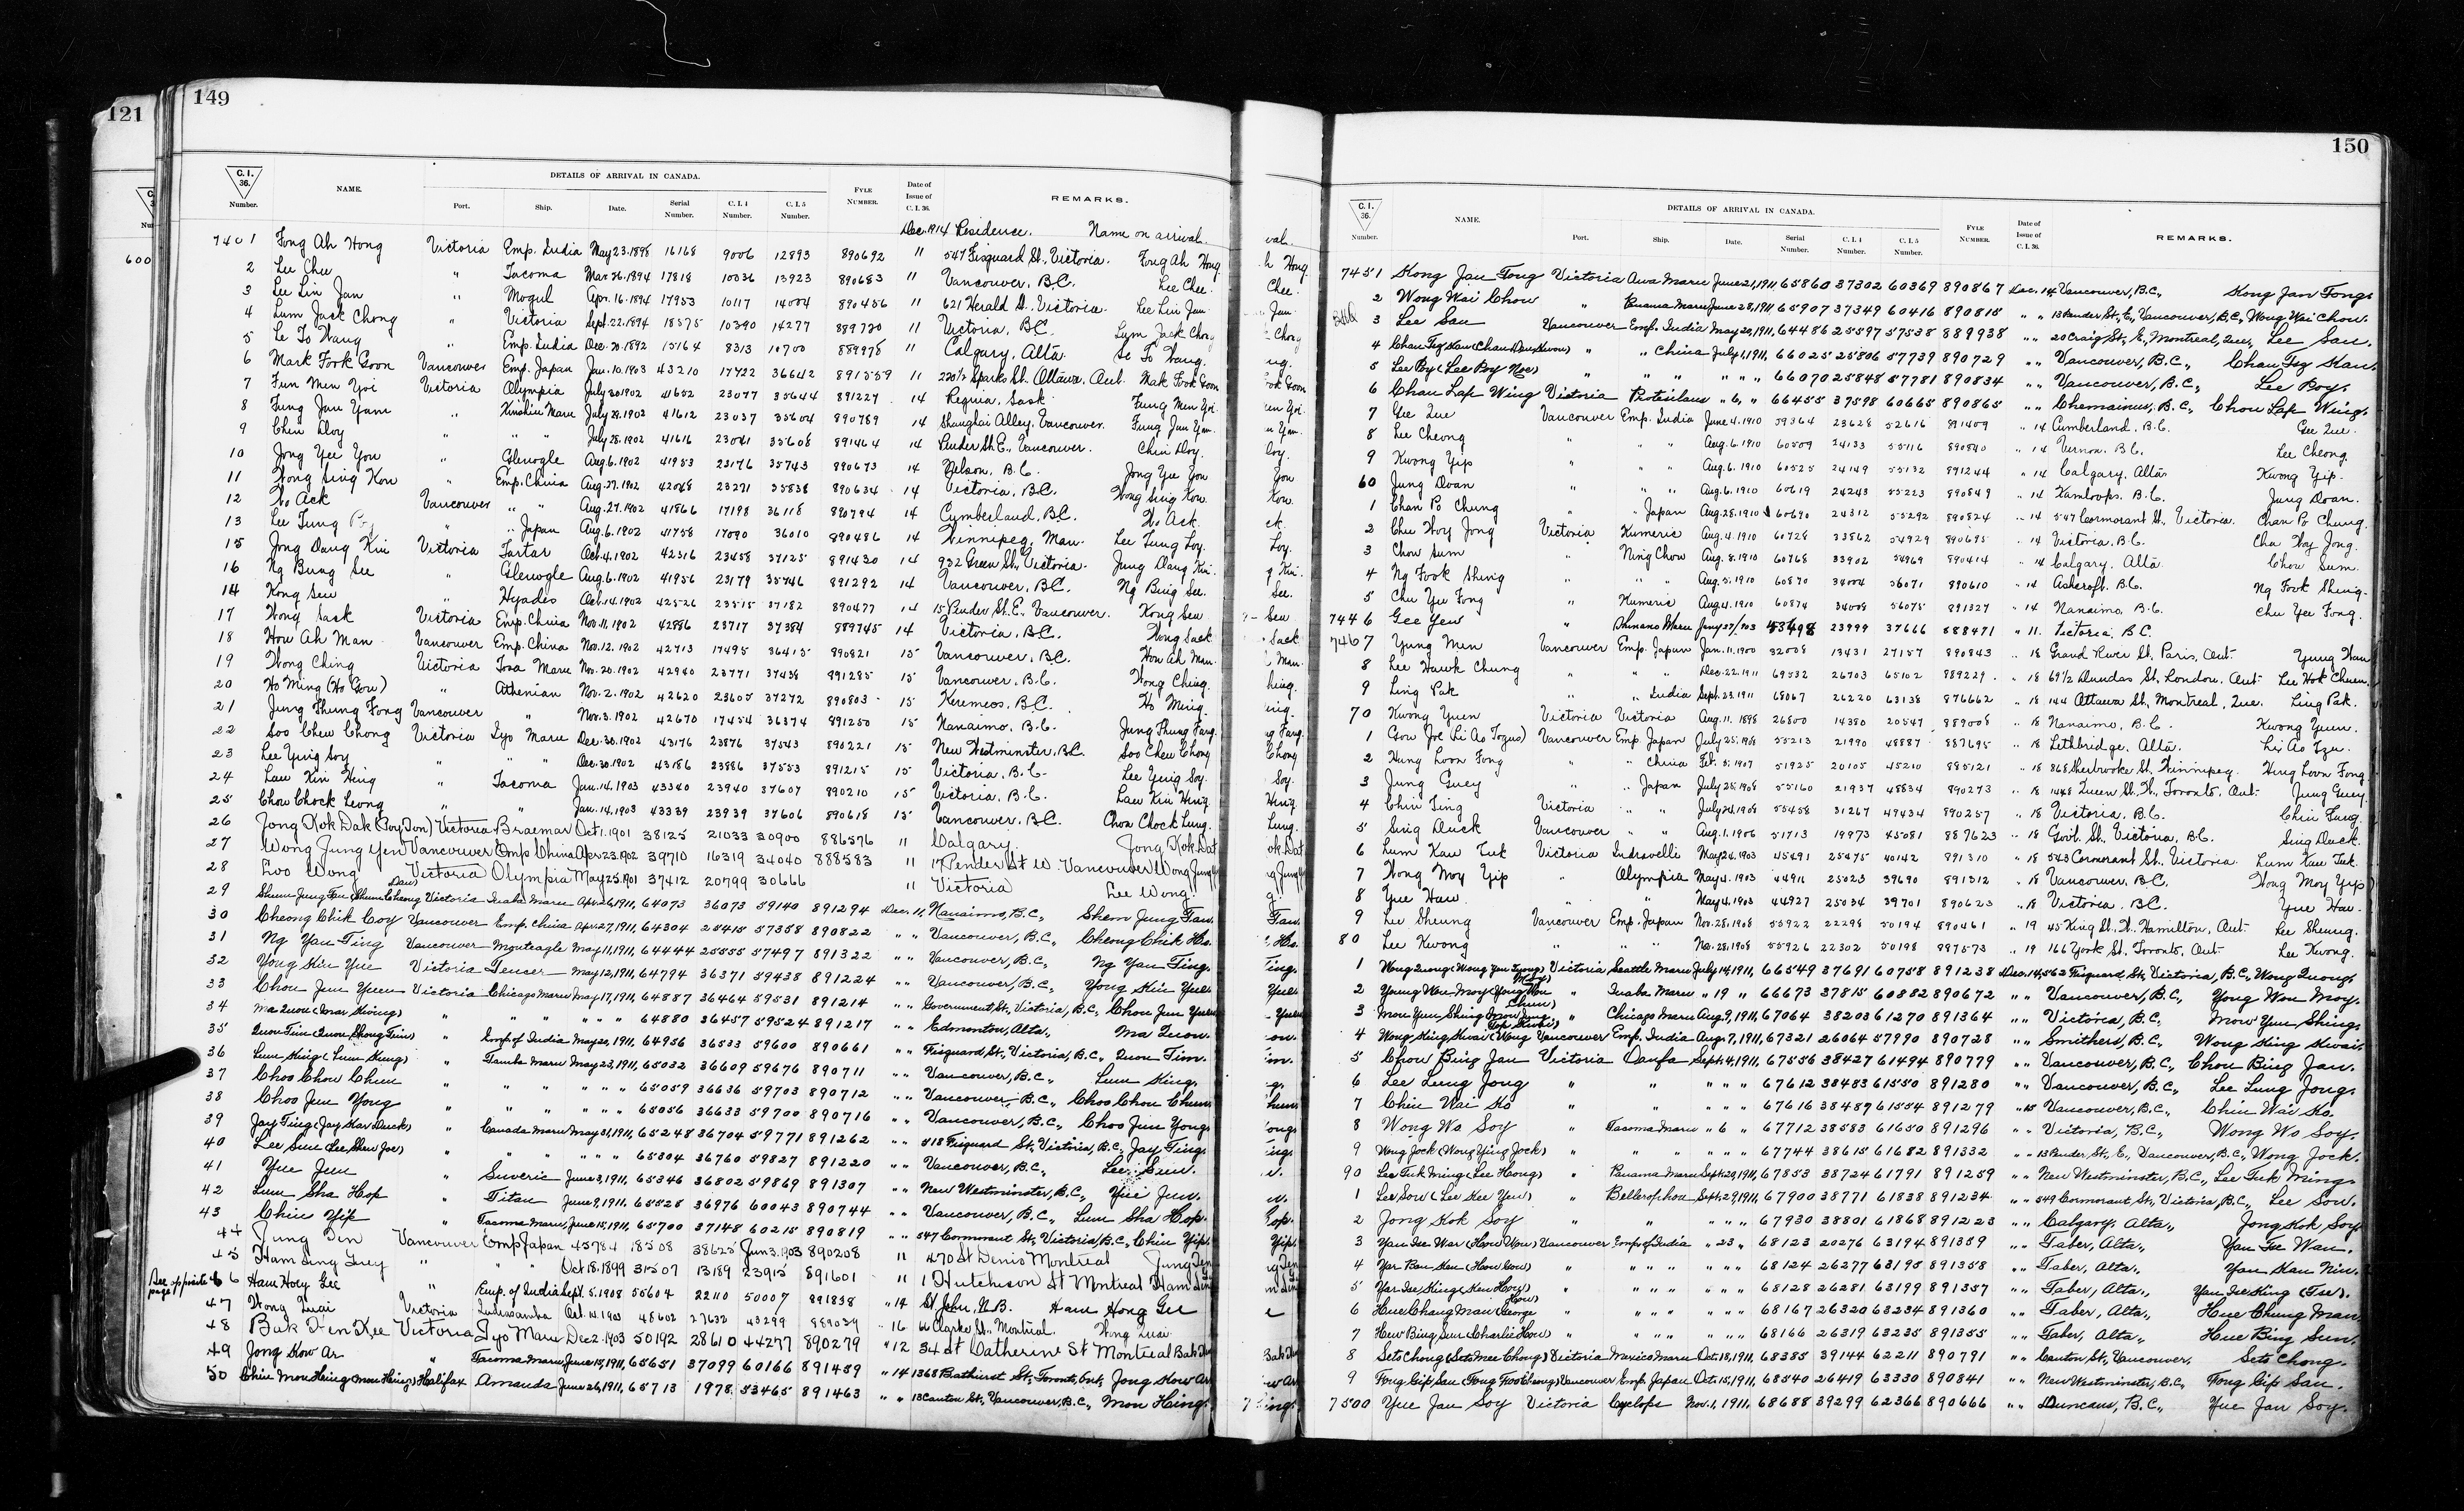 121
149
C. I. 36. Number. NAME. DETAILS OF ARRIVAL IN CANADA. Port. Ship. Date. Serial Number. C. I. 4 Number. C. I. 5 Number. FYLE NUMBER. Date of Issue of C. I. 36. REMARKS.
Dec. 1914 Residence. Name on arrival.
7401 Fong Ah Hong Victoria Emp. India May 23. 1898 16168 9006 12893 890692 11 547 Fisguard St., Victoria. Fong Ah Hong
2 Lee Chee " Tacoma Mar. 26. 1894 17818 10036 13923 890683 11 Vancouver, B.C. Lee Chee.
3 Lee Lin Jan " Mogul Apr. 16. 1894 17953 10117 14004 890456 11 621 Herald St. Victoria. Lee Lin Jan
4 Lum Jack Chong " Victoria Sept. 22. 1894 18575 10390 14277 889720 11 Victoria, B.C. Lym Jack Chong
5 Le To Wang " Emp. India Dec. 20. 1892 15164 8313 10700 889978 11 Calgary, Alta. Le To Wang.
6 Mark Fook Goon Vancouver Emp. Japan Jan. 10. 1903 43210 17722 36642 891559 11 220½ Sparks St. Ottawa, Ont. Mak Fook Goon
7 Fun Men Yoi Victoria Olympia July 20. 1902 41652 23077 35644 891227 14 Regina, Sask. Fung Men Yoi.
8 Fung Jan Yam " Kinshiu Maru July 28. 1902 41612 23037 35604 890789 14 Shanghai Alley, Vancouver. Fung Jan Yam.
9 Chin Doy " " " July 28. 1902 41616 23041 35608 891464 14 Pender St. E., Vancouver. Chin Doy.
10 Jong Yee Yon " Glenogle Aug. 6. 1902 41953 23176 35743 890673 14 Nelson, B.C. Jong Yee Yon
11 Wong Sing Kow " Emp. China Aug. 27. 1902 42048 23271 35838 890634 14 Victoria, B.C. Wong Sing Kow.
12 Wo Ack Vancouver " " Aug. 27. 1902 41866 17198 36118 890794 14 Cumberland, B.C. Wo Ack.
13 Lee Tung " " Japan Aug. 6. 1902 41758 17090 36010 890486 14 Winnipeg, Man. Lee Tung Loy.
15 Jong Dang Kin Victoria Tartar Oct. 4. 1902 42316 23458 37125 891430 14 932 Green St., Victoria. Jung Dang Kin.
16 Ng Bung See " Glenogle Aug. 6. 1902 41956 23179 35746 891292 14 Vancouver, B.C. Ng Bing See.
14 Kong Seu " Hyades Oct. 14. 1902 42526 23515 37182 890477 14 15 Pender St. E., Vancouver. Kong Seu
17 Wong Sack Victoria Emp. China Nov. 11. 1902 42886 23717 37384 889745 14 Victoria, B.C. Wong Sack
18 How Ah Man Vancouver Emp. China Nov. 12. 1902 42713 17495 36415 890821 15 Vancouver, B.C. How Ah Man.
19 Wong Ching Victoria Tosa Maru Nov. 20. 1902 42940 23771 37438 891285 15 Vancouver, B.C. Wong Ching.
20 Ho Ming (Ho Gow) " Athenian Nov. 2. 1902 42620 23605 37272 890803 15 Keremeos, B.C. Ho Ming.
21 Jung Thung Fong Vancouver " Nov. 3. 1902 42670 17454 36374 891250 15 Nanaimo, B.C. Jung Thung Fang.
22 Soo Chew Chong Victoria Iyo Maru Dec. 30. 1902 43176 23876 37543 890221 15 New Westminster, B.C. Soo Chew Chong
23 Lee Ying Soy " " " Dec. 30. 1902 43186 23886 37553 891215 15 Victoria, B.C. Lee Ying Soy.
24 Law Kin Hing " Tacoma Jan. 14. 1903 43340 23940 37607 890210 15 Victoria, B.C. Law Kin Hing.
25 Chow Chock Leong " " Jan. 14. 1903 43339 23939 37606 890618 15 Vancouver, B.C. Chow Chock Lung.
26 Jong Kok Dak (Soy Don) Victoria Braemar Oct. 1. 1901 38125 21033 30900 886576 11 Calgary. Jong Kok Dat
27 Wong Jung Yen Vancouver Emp China Apr 23. 1902 39710 16319 34040 888583 11 17 Pender St W. Vancouver Wong Jung
28 Loo Wong Victoria Olympia May 25. 1901 37412 20799 30666 11 Victoria Lee Wong
29 Shum Jung Fan (Shum Cheong Dan) Victoria Inaba Maru Apr. 26, 1911, 64073 36073 59140 891294 Dec. 11, Nanaimo, B.C., Shem Jung Fan.
30 Cheong Chik Coy Vancouver Emp. China Apr. 27, 1911, 64304 25415 57358 890822 " " Vancouver, B.C., Cheong Chik Ho.
31 Ng Yan Ting Vancouver Monteagle May 11, 1911, 64444 25555 57497 891322 " " Vancouver, B.C., Ng Yan Ting.
32 Yong Kin Yue Victoria Teucer May 12, 1911, 64794 36371 59438 891224 " " Vancouver, B.C., Yong Kin Yue.
33 Chou Jun Yuen Victoria Chicago Maru May 17, 1911, 64887 36464 59531 891214 " " Government St., Victoria, B.C., Chou Jun Yuen
34 Ma Quon (Mar Hiving) " " " " " " 64880 36457 59524 891217 " " Edmonton, Alta., Ma Quon.
35 Quon Tim (Quon Shong Tim) " Emp. of India May 20, 1911, 64956 36533 59600 890661 " " Fisguard St., Victoria, B.C., Quon Tim.
36 Lum King (Lum Kung) " Tamba Maru May 23, 1911, 65032 36609 59676 890711 " " Vancouver, B.C., Lum King.
37 Choo Chou Chun " " " " " " 65059 36636 59703 890712 " " Vancouver, B.C., Choo Chou Chun.
38 Choo Jun Yong " " " " " " 65056 36633 59700 890716 " " Vancouver, B.C., Choo Jun Yong.
39 Jay Ting (Jay Kar Duck) " Canada Maru May 31, 1911, 65248 36704 59771 891262 " " 518 Fisguard St., Victoria, B.C., Jay Ting.
40 Lee Sun (Lee Shew Joe) " " " " " " 65304 36760 59827 891220 " " Vancouver, B.C., Lee Sun.
41 Yue Jun " Suveric June 3, 1911, 65346 36802 59869 891307 " " New Westminster, B.C., Yue Jun.
42 Lum Sha Hop " Titan June 9, 1911, 65528 36976 60043 890744 " " Vancouver, B.C., Lum Sha Hop.
43 Chin Yip " Tacoma Maru, June 15, 1911, 65700 37148 60215 890819 " " 547 Cormorant St., Victoria, B.C., Chin Yip.
44 Jung Den Vancouver Emp Japan 45784 18508 38625 Jun 3. 1903 890208 11 470 St Denis Montreal Jung Den
45 Ham Sing Luey " " " Oct 18. 1899 31507 13189 23915 891601 11 1 Hutchison St Montreal Ham Sin
See opposite page 46 Ham Hoey Gee " Emp. of India Sept. 5. 1908 55604 22110 50007 891838 " 14 St. John, N.B. Ham Hong Gee
47 Wong Quai Victoria Indrasamha Oct. 10. 1903 48602 27632 43299 889039 " 16 66 Clarke St., Montreal. Wong Quai
48 Bak Fen Kee Victoria Iyo Maru Dec 2. 1903 50192 28610 44277 890279 " 12 34 St Catherine St Montreal Bak
49 Jong Kow Ar " Tacoma Maru June 15, 1911, 65651 37099 60166 891459 " 14 1368 Bathurst St., Toronto, Ont., Jong Kow Ar
50 Chin Mon Hing (Mon Hing) Halifax Amanda June 26, 1911, 65713 1978 53465 891463 " " 13 Canton St., Vancouver, B.C., Mon Hing.
150
C. I. 36. Number. NAME. DETAILS OF ARRIVAL IN CANADA. Port. Ship. Date. Serial Number. C. I. 4 Number. C. I. 5 Number. FYLE NUMBER. Date of Issue of C. I. 36. REMARKS.
7451 Kong Jan Fong Victoria Awa Maru June 21, 1911 65860 37302 60369 890867 Dec. 14, Vancouver, B.C., Kong Jan Fong.
2 Wong Wai Chow " Panama Maru June 28, 1911, 65907 37349 60416 890815 " " 13 Pender St., E., Vancouver, B.C., Wong Wai Chou.
3 Lee San Vancouver Emp. India May 29, 1911, 64486 25597 57538 889938 " " 20 Craig St., E., Montreal, Que., Lee San.
4 Chan Tez Kan (Chan Don Kwon) " " China July 1, 1911, 66025 25806 57739 890729 " " Vancouver, B.C., Chan Tez Kan.
5 Lee Boy (Lee Boy Noe) " " " " " " 66070 25848 57781 890834 " " Vancouver, B.C., Lee Boy.
6 Chan Lap Wing Victoria Protesilaus " 6, " 66455 37598 60665 890865 " " Chemainus, B.C., Chou Lap Wing.
7 Gee Que Vancouver Emp. India June 4. 1910 59364 23628 52616 891409 " 14 Cumberland, B.C. Gee Que.
8 Lee Cheong " " " Aug. 6. 1910 60509 24133 55116 890840 " 14 Vernon, B.C. Lee Cheong.
9 Kwong Yip " " " Aug. 6. 1910 60525 24149 55132 891244 " 14 Calgary, Alta. Kwong Yip.
60 Jung Doan " " " Aug. 6. 1910 60619 24243 55223 890849 " 14 Kamloops, B.C. Jung Doan.
1 Chan Po Chung " " Japan Aug. 28. 1910 60690 24312 55292 890824 " 14 547 Cormorant St., Victoria. Chan Po Chung.
2 Chu Woy Jong Victoria Kumeric Aug. 4. 1910 60728 33862 54929 890695 " 14 Victoria, B.C. Chu Woy Jong.
3 Chow Sum " Ning Chow Aug. 8. 1910 60768 33902 54969 890414 " 14 Calgary, Alta. Chow Sum.
4 Ng Fook Shing " " " Aug. 5. 1910 60870 34004 56071 890610 " 14 Ashcroft, B.C. Ng Fook Sheng.
5 Chu Yee Fong " Kumeric Aug. 4. 1910 60874 34008 56075 891327 " 14 Nanaimo, B.C. Chu Yee Fong.
7446 Gee Yew " Shinano Maru Jany 27/903 43498 23999 37666 888471 " 11. Victoria, B.C.
7467 Yung Men Vancouver Emp. Japan Jan. 11. 1900 32008 13431 27157 890843 " 18 Grand River St. Paris, Ont. Yung Wan
8 Lee Hawk Chung " " " Dec. 22. 1911 69532 26703 65102 889229 " 18 69½ Dundas St., London, Ont. Lee Hok Chuen.
9 Ling Pak " " India Sept. 23. 1911 68067 26220 63138 876662 " 18 144 Ottawa St., Montreal, Que. Ling Pak.
70 Kwong Yuen Victoria Victoria Aug. 11. 1898 26800 14380 20547 889008 " 18 Nanaimo, B.C. Kwong Yuen.
1 Gow Joe (Li Ao Tozus) Vancouver Emp. Japan July 25. 1908 55213 21990 48887 887695 " 18 Lethbridge, Alta. Li Ao Tzu.
2 Hung Loon Fong " " China Feb. 5. 1907 51925 20105 45210 885121 " 18 868 Sherbrooke St., Winnipeg. Hung Loon Fong.
3 Jung Guey " " Japan July 25. 1908 55160 21937 48834 890273 " 18 1448 Queen St. W., Toronto, Ont. Jung Guey.
4 Chin Ting Victoria " " July 24. 1908 55458 31267 49434 890257 " 18 Victoria, B.C. Chin Ting.
5 Sing Duck Vancouver " " Aug. 1. 1906 51713 19973 45081 887623 " 18 Govt. St., Victoria, B.C. Sing Duck.
6 Lum Kau Tuk Victoria Indravelli May 24. 1903 45491 25475 40142 891310 " 18 543 Cormorant St., Victoria. Lum Kau Tuk.
7 Wong Moy Yip " Olympia May 4. 1903 44911 25023 39690 891312 " 18 Vancouver, B.C. Wong Moy Yip
8 Yue Haw " " May 4. 1903 44927 25034 39701 890623 " 18 Victoria, B.C. Yue Haw.
9 Lee Sheung Vancouver Emp. Japan Nov. 28. 1908 55922 22298 50194 890461 " 19 45 King St., W., Hamilton, Ont. Lee Sheung.
80 Lee Kwong " " " Nov. 28. 1908 55926 22302 50198 887573 " 19 166 York St., Toronto, Ont. Lee Kwong.
1 Wong Quong (Wong Yan Fung) Victoria Seattle Maru July 14, 1911, 66549 37691 60758 891238 Dec. 14, 562 Fisguard St., Victoria, B.C., Wong Quong.
2 Young Wou Moy (Yong Wou May) " Inaba Maru " 19 " 66673 37815 60882 890672 " " Vancouver, B.C., Yong Wou Moy.
3 Mou Yun Shing (Mow Jung Chun) " Chicago Maru Aug. 9, 1911, 67064 38203 61270 891364 " " Victoria, B.C., Mow Yun Shing.
4 Wong King Kwai (Wong Top Kwai) Vancouver Emp. India Aug. 7, 1911, 67321 26064 57990 890728 " " Smithers, B.C., Wong King Kwai.
5 Chow Bing Jan Victoria Oanfa Sept. 4, 1911, 67556 38427 61494 890779 " " Vancouver, B.C., Chou Bing Jan.
6 Lee Lung Jong " " " " " 67612 38483 61550 891280 " " Vancouver, B.C., Lee Lung Jong.
7 Chin Wai Ko " " " " " 67616 38487 61554 891279 " 15 Vancouver, B.C., Chin Wai Ko.
8 Wong Wo Soy " Tacoma Maru " 6 " 67712 38583 61650 891296 " " Victoria, B.C., Wong Wo Soy.
9 Wong Jock (Wong Ying Jock) " " " " " " 67744 38615 61682 891332 " " 13 Pender St., E., Vancouver, B.C., Wong Jock.
90 Lee Tuk Ming (Lee Hong) " Panama Maru Sept. 20, 1911, 67853 38724 61791 891259 " " New Westminster, B.C., Lee Tuk Ming.
1 Lee Sow (Lee Kee Yew) " Bellerophon Sept. 29, 1911, 67900 38771 61838 891234 " " 549 Cormorant St., Victoria, B.C., Lee Sow.
2 Jong Kok Soy " " " " " 67930 38801 61868 891223 " " Calgary, Alta., Jong Kok Soy
3 Yan See War (How Wou) Vancouver Emp. of India " 23 " 68123 20276 63194 891359 " " Taber, Alta., Yan Tse Wan.
4 Yar Ban Kew (How Gow) " " " " " " 68124 26277 63195 891358 " " Taber, Alta., Yan Kan Nin.
5 Yar See King (Ken How) " " " " " " 68128 26281 63199 891357 " " Taber, Alta., Yan See King (Tse).
6 Hue Chang Man (George How) " " " " " " 68167 26320 63234 891360 " " Taber, Alta., Hue Chung Man
7 Hew Bing Sun (Charlie How) " " " " " " 68166 26319 63235 891355 " " Taber, Alta., Hue Bing Sun.
8 Seto Chong (Seto Mee Chong) Victoria Mexico Maru Oct. 18, 1911, 68385 39144 62211 890791 " " Canton St., Vancouver, Seto Chong.
9 Fong Gip San (Fong Foot Chong) Vancouver Emp. Japan Oct. 15, 1911, 68540 26419 63330 890841 " " New Westminster, B.C., Fong Gip San.
7500 Yue Jan Soy Victoria Cyclops Nov. 1, 1911, 68688 39299 62366 890666 " " Duncans, B.C., Yue Jan Soy.